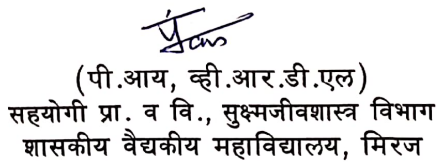 (पी.आय, व्ही.आर.डी.एल)
सहयोगी प्रा. व वि., सुक्ष्मजीवशास्त्र विभाग
शासकीय वैद्यकीय महाविद्यालय, मिरज